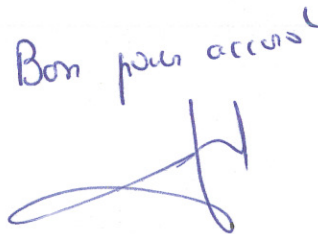 Bon pour accord